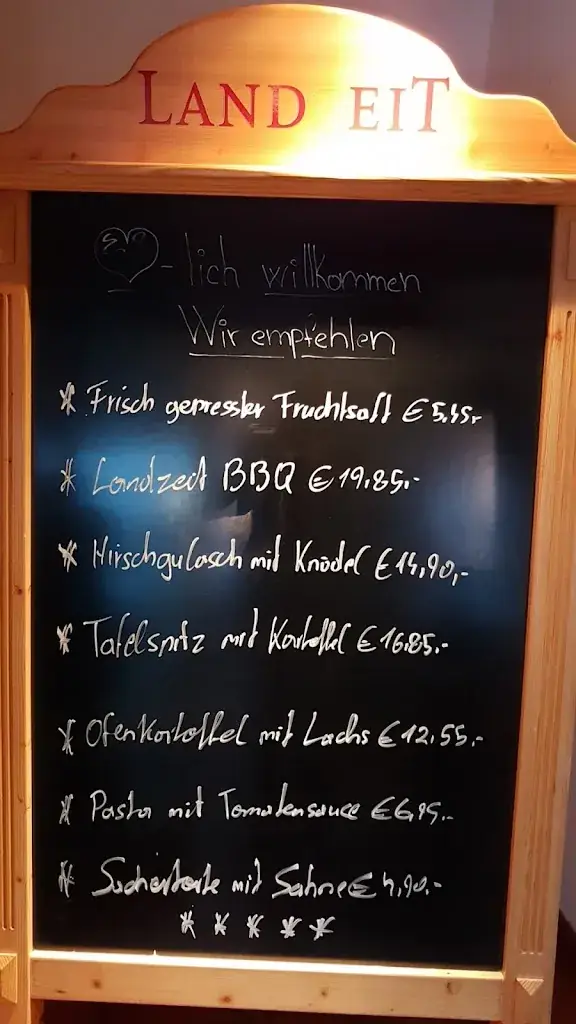 LAND EIT
-lich willkommen
Wir empfehlen
* Frisch gepresster Fruchtsaft € 5,45,-
* Landzeit BBQ € 19,85,-
* Hirschgulasch mit Knödel € 14,90,-
* Tafelspitz mit Kartoffel € 16,85,-
* Ofenkartoffel mit Lachs € 12,55,-
* Pasta mit Tomatensauce € 6,95,-
* Sachertorte mit Sahne € 4,90,-
* * * * *